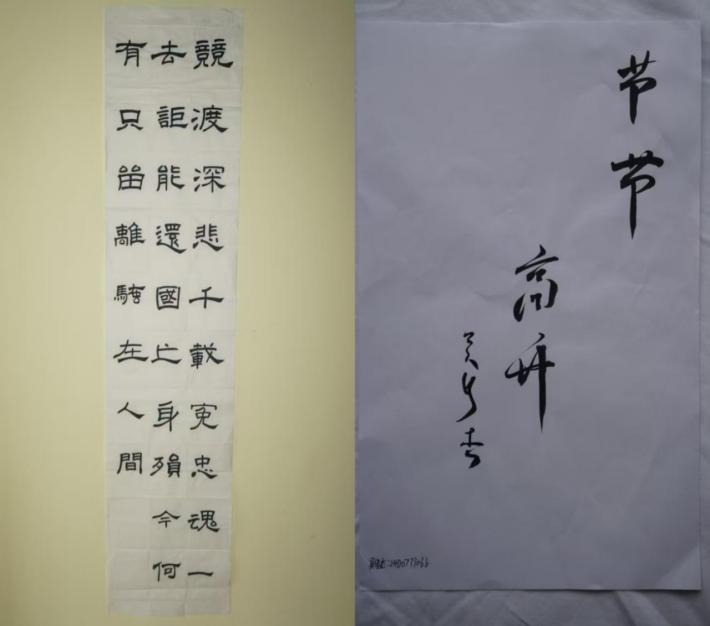 競渡深悲千載冤忠魂一
去詎能還國亡身殞今何
有只留離騷在人間
节节
高升